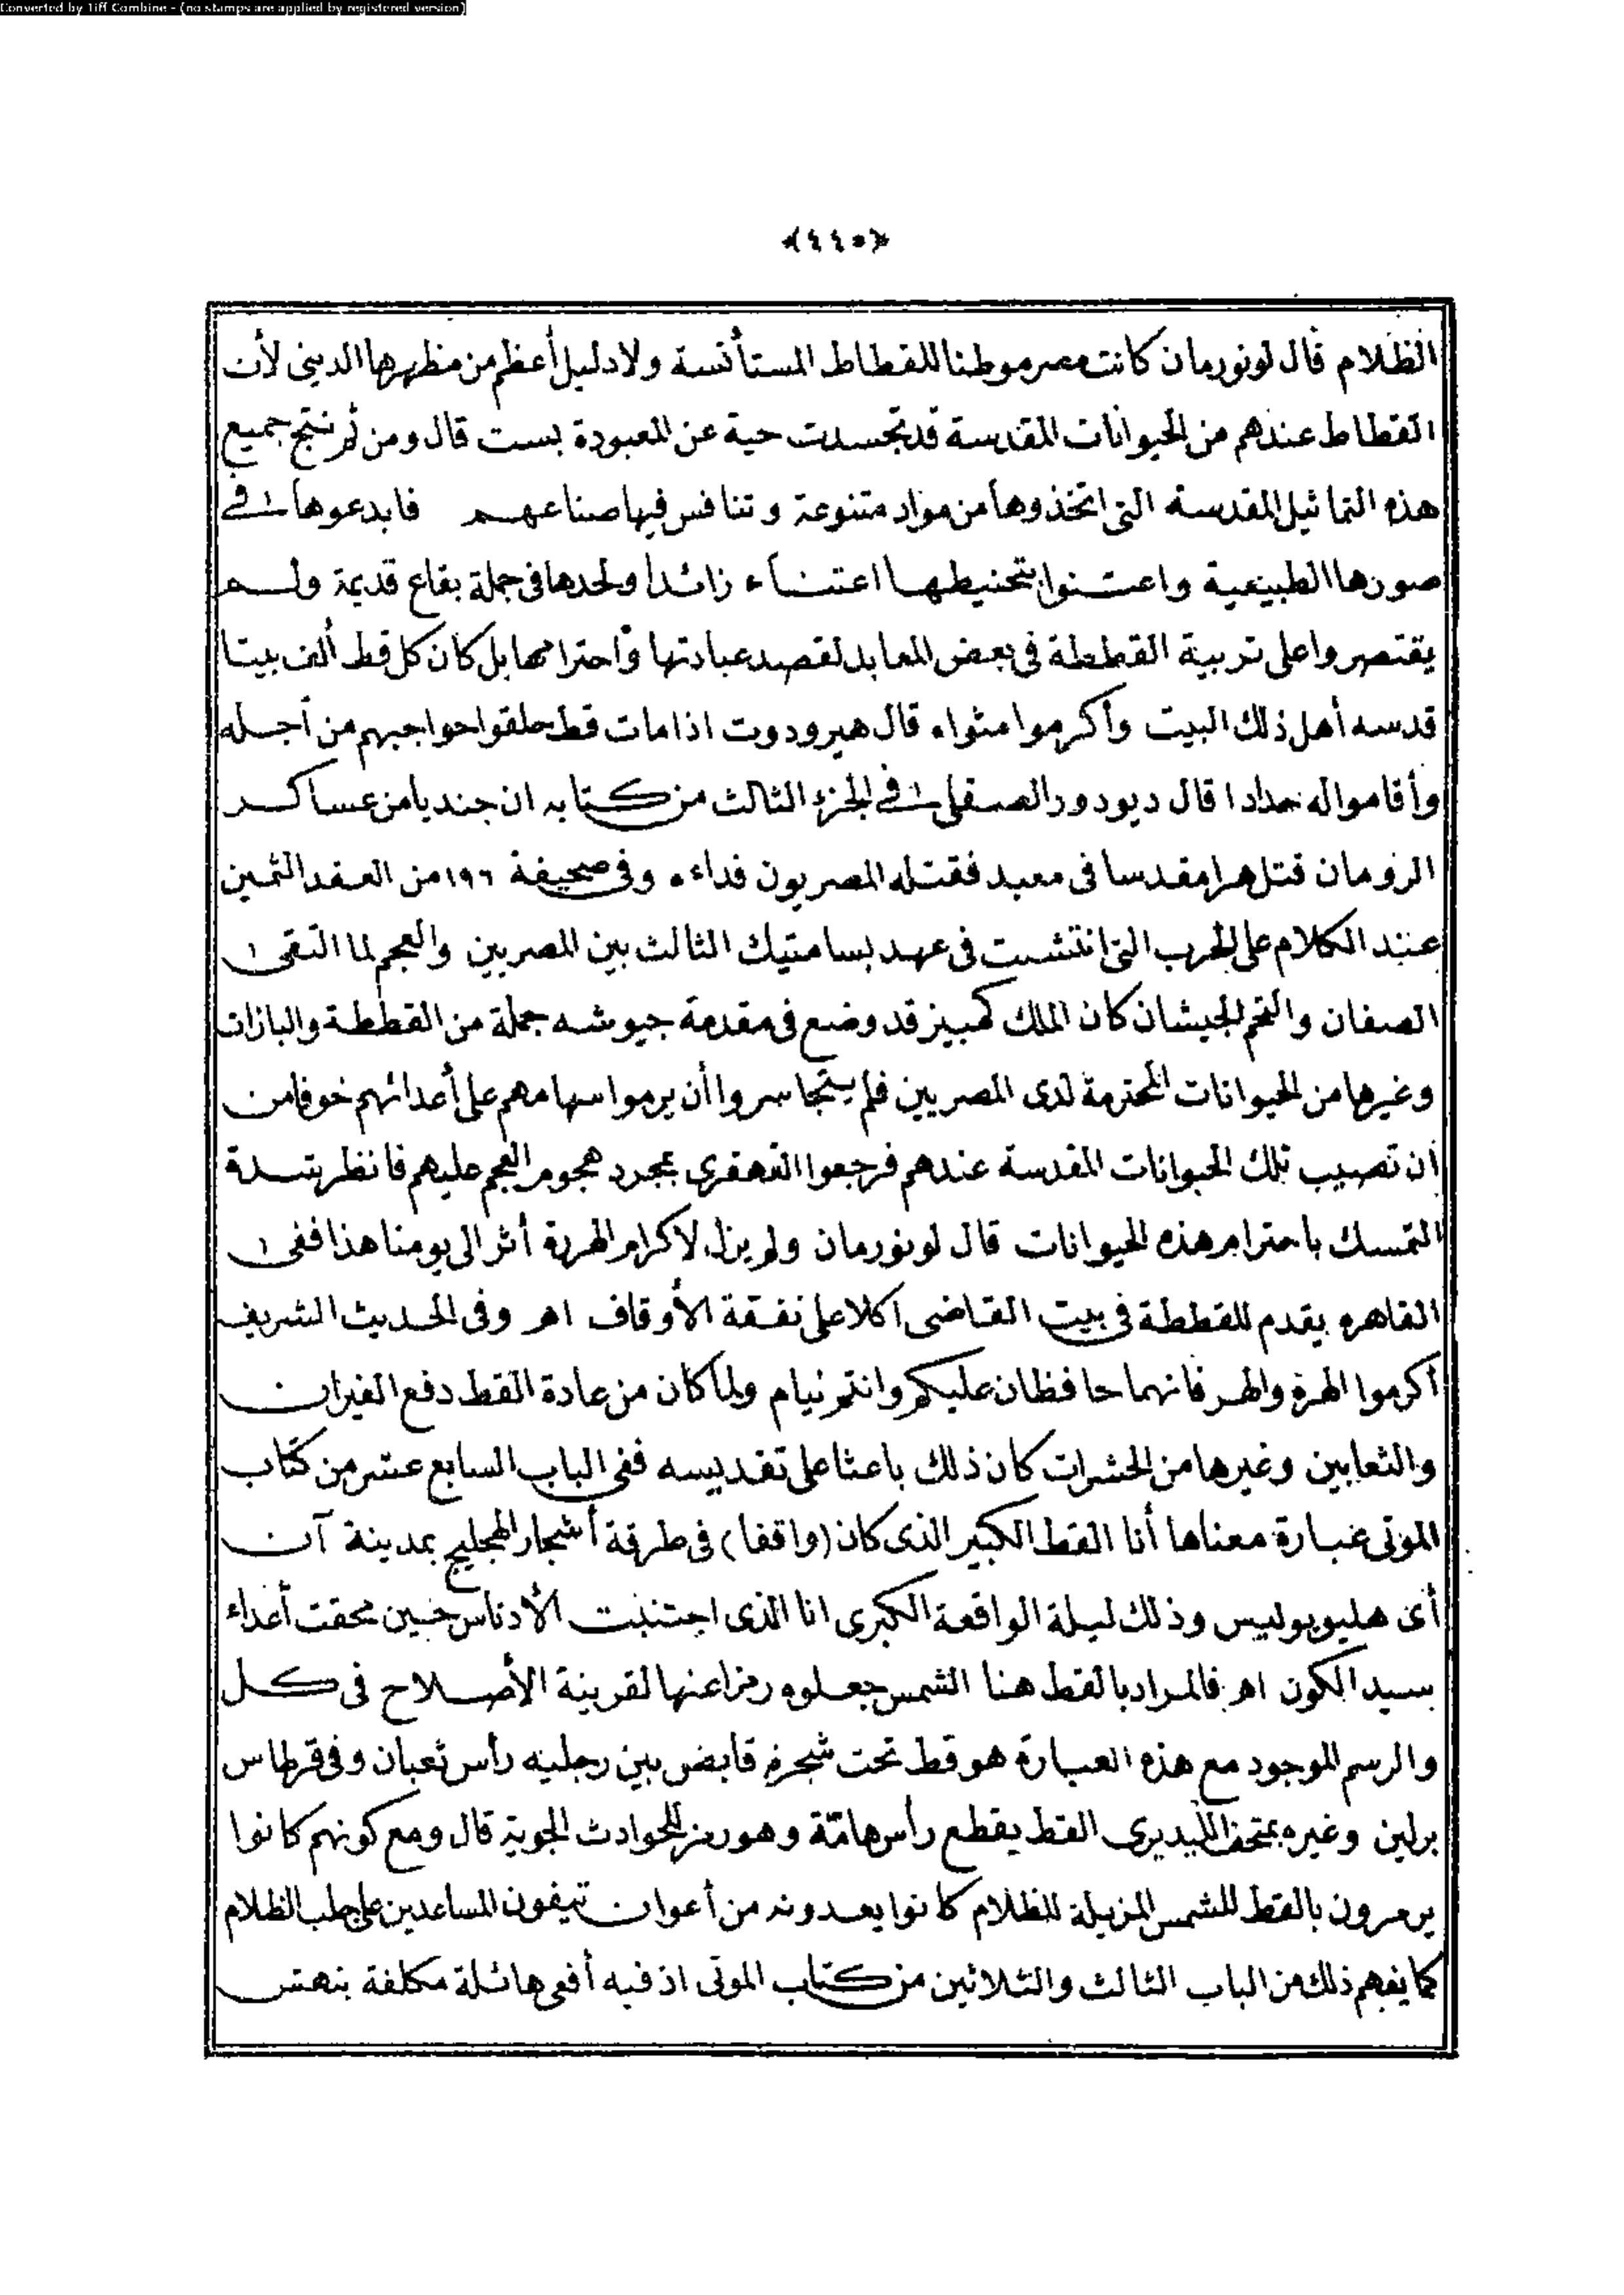 Converted by Tiff Combine - (no stamps are applied by registered version)
﴿٤٤٥﴾
الظلام قال لونورمان كانت مصر موطنا للقطاط المستأنسة ولا دليل أعظم من مظهرها الدينى لأن
القطاط عندهم من الحيوانات المقدسة قد تجسدت حية عن المعبودة بست قال ومن ثم نتج جميع
هذه التماثيل المقدسة التى اتخذوها من مواد متنوعة وتنافس فيها صناعهم فابدعوها فى
صورها الطبيعية واعتنوا بتحنيطها اعتناء زائدا ولحدها فى جملة بقاع قديمة ولم
يقتصروا على تربية القططة فى بعض المعابد لقصد عبادتها واحترامها بل كان كل قط ألف بيتا
قدسه أهل ذلك البيت وأكرموا مثواه قال هيرودوت اذا مات قط حلقوا حواجبهم من أجله
وأقاموا له حدادا قال ديودور الصقلى فى الجزء الثالث من كتابه ان جنديا من عساكر
الرومان قتل هرا مقدسا فى معبد فقتله المصريون فداءه وفى صحيفة ١٩٦ من العقد الثمين
عند الكلام على الحرب التى انتشبت فى عهد بسامتيك الثالث بين المصريين والعجم لما التقى
الصفان والتحم الجيشان كان الملك كمبيز قد وضع فى مقدمة جيوشه جملة من القططة والبازات
وغيرها من الحيوانات المحترمة لدى المصريين فلم يتجاسروا أن يرموا سهامهم على أعدائهم خوفا من
أن تصيب تلك الحيوانات المقدسة عندهم فرجعوا القهقرى بمجرد هجوم العجم عليهم فانظر شدة
التمسك باحترام هذه الحيوانات قال لونورمان ولم يزل لاكرام الهررة أثر الى يومنا هذا ففى
القاهره يقدم للقططة فى بيت القاضى أكلا على نفقة الأوقاف اهر وفى الحديث الشريف
أكرموا الهرة والهر فانهما حافظان عليكم وانتم نيام ولما كان من عادة القط دفع الفيران
والثعابين وغيرها من الحشرات كان ذلك باعثا على تقديسه ففى الباب السابع عشر من كتاب
الموتى عبارة معناها أنا القط الكبير الذى كان (واقفا) فى طرقة أشجار الهجليج بمدينة آن
أى هليوبوليس وذلك ليلة الواقعة الكبرى انا الذى اجتنبت الأدناس حين محقت أعداء
سيد الكون اهر فالمراد بالقط هنا الشمس جعلوه رمزا عنها لقرينة الأصلاح فى كل
والرسم الموجود مع هذه العبارة هو قط تحت شجرة قابض بين رجليه رأس ثعبان وفى قرطاس
برلين وغيره بمتحف الليديرى القط يقطع رأس هامّة وهو رمز للحوادث الجوية قال ومع كونهم كانوا
يرمزون بالقط للشمس المزيلة للظلام كانوا يعدونه من أعوان تيفون المساعدين على جلب الظلام
كما يفهم ذلك من الباب الثالث والثلاثين من كتاب الموتى اذ فيه أفعى هائلة مكلفة بنهش